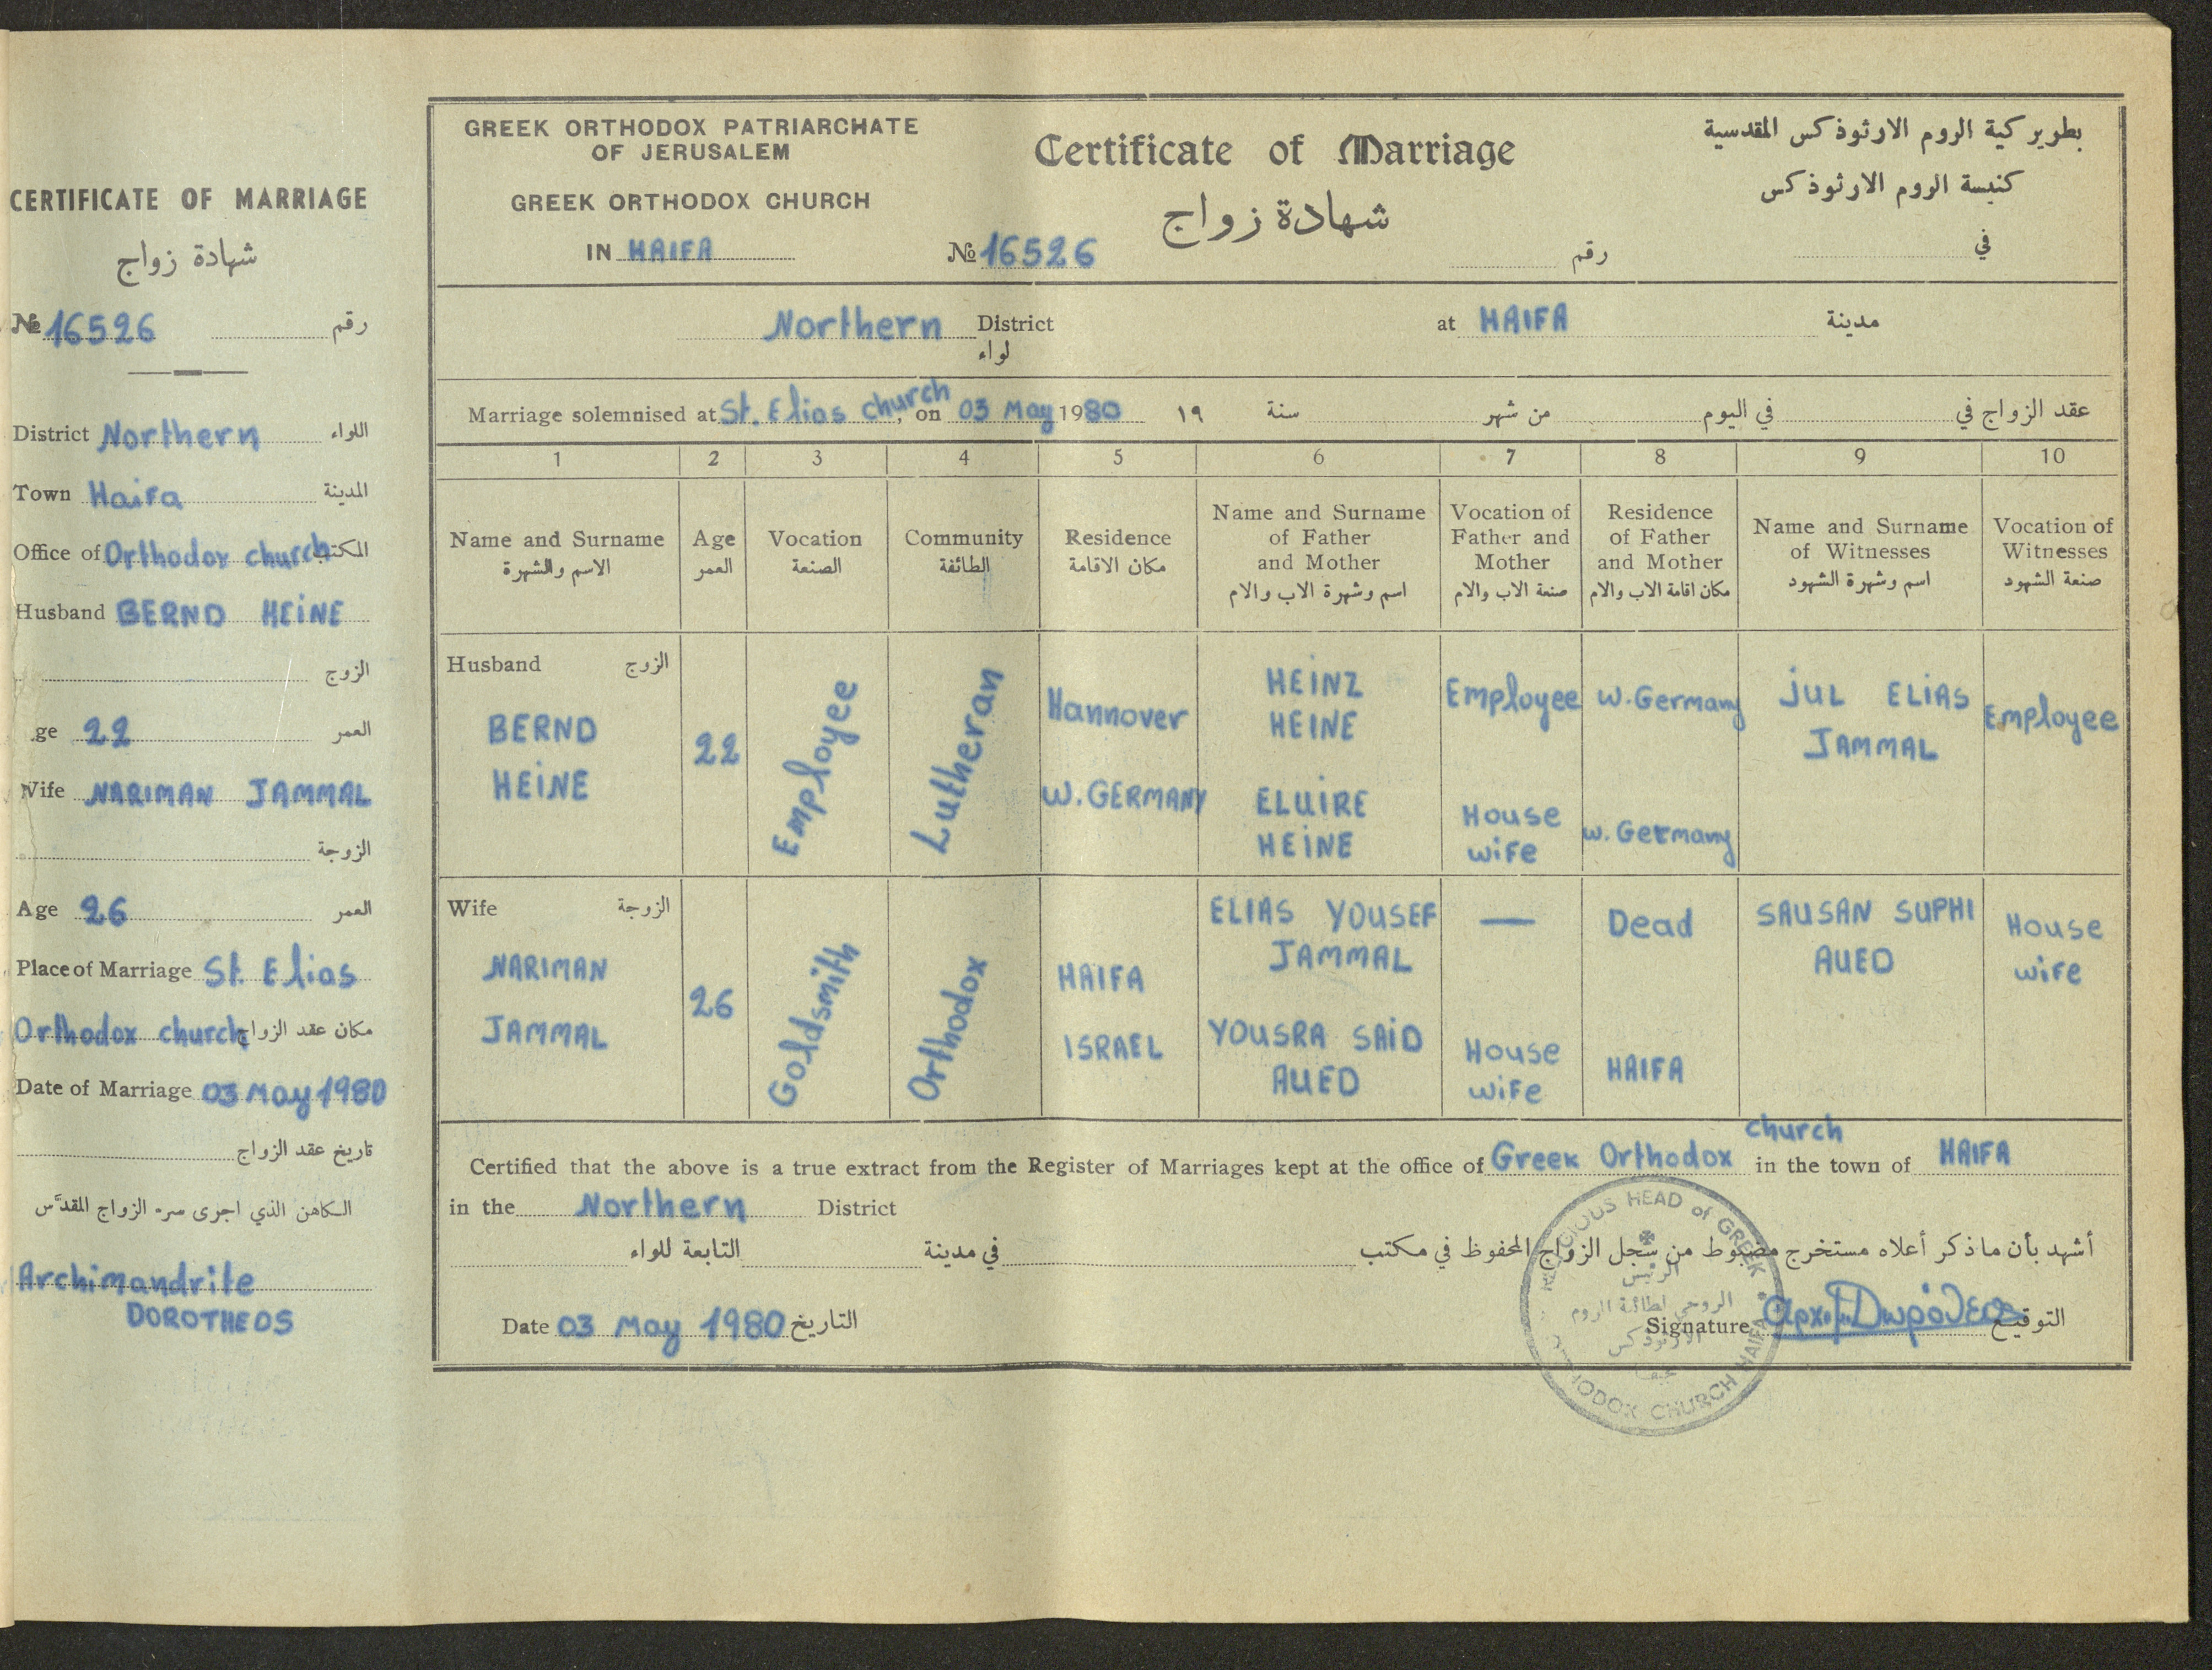 CERTIFICATE OF MARRIAGE
شهادة زواج
№ 16526 رقم
District Northern اللواء
Town Haifa المدينة
Office of Orthodox church المكتب
Husband BERND HEINE
الزوج
ge 22 العمر
Wife NARIMAN JAMMAL
الزوجة
Age 26 العمر
Place of Marriage St. Elias
Orthodox church مكان عقد الزواج
Date of Marriage 03 May 1980
تاريخ عقد الزواج
الكاهن الذي اجرى سر الزواج المقدَّس
Archimandrite
DOROTHEOS
GREEK ORTHODOX PATRIARCHATE
OF JERUSALEM
GREEK ORTHODOX CHURCH
IN HAIFA
Certificate of Marriage
شهادة زواج
№ 16526 رقم
بطوير كية الروم الارثوذكس المقدسية
كنيسة الروم الارثوذكس
في
Northern District at HAIFA مدينة
لواء
Marriage solemnised at St. Elias church, on 03 May 1980 عقد الزواج في في اليوم من شهر سنة ١٩
1 2 3 4 5 6 7 8 9 10
Name and Surname
الاسم والشهرة
Age
العمر
Vocation
الصنعة
Community
الطائفة
Residence
مكان الاقامة
Name and Surname
of Father
and Mother
اسم وشهرة الاب والام
Vocation of
Father and
Mother
صنعة الاب والام
Residence
of Father
and Mother
مكان اقامة الاب والام
Name and Surname
of Witnesses
اسم وشهرة الشهود
Vocation of
Witnesses
صنعة الشهود
Husband الزوج
BERND
HEINE
22
Employee
Lutheran
Hannover
W.GERMANY
HEINZ
HEINE
ELUIRE
HEINE
Employee
House
wife
W.Germany
W.Germany
JUL ELIAS
JAMMAL
Employee
Wife الزوجة
NARIMAN
JAMMAL
26
Goldsmith
Orthodox
HAIFA
ISRAEL
ELIAS YOUSEF
JAMMAL
YOUSRA SAID
AUED
—
House
wife
Dead
HAIFA
SAUSAN SUPHI
AUED
House
wife
Certified that the above is a true extract from the Register of Marriages kept at the office of Greek Orthodox church in the town of HAIFA
in the Northern District
أشهد بأن ما ذكر أعلاه مستخرج مضبوط من سجل الزواج المحفوظ في مكتب في مدينة التابعة للواء
Date 03 May 1980 التاريخ
Signature Αρχιμ. Δωρόθεος التوقيع
RELIGIOUS HEAD of GREEK ORTHODOX CHURCH HAIFA
الرئيس
الروحي لطائفة الروم
الارثوذكس
بحيفا